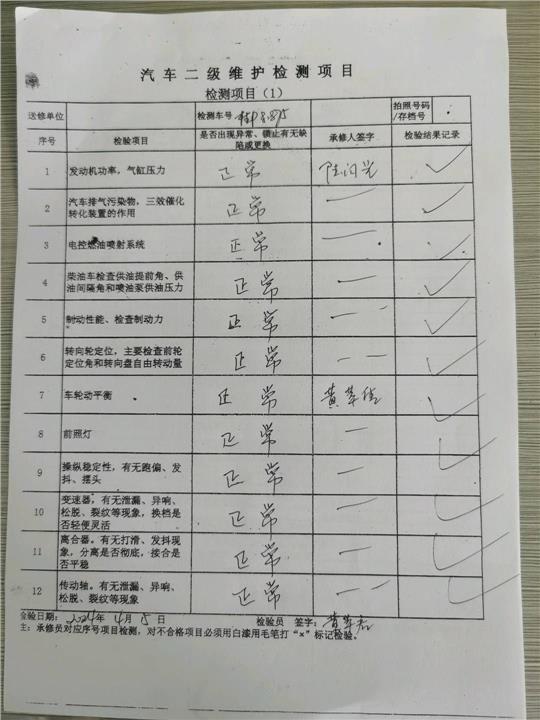 汽车二级维护检测项目
检测项目（1）
送修单位 检测车号 拍照号码/存档号
序号 检验项目 是否出现异常、锁止有无缺陷或更换 承修人签字 检验结果记录
1 发动机功率，气缸压力 正常 ✓
2 汽车排气污染物，三效催化转化装置的作用 正常 — ✓
3 电控燃油喷射系统 正常 — ✓
4 柴油车检查供油提前角、供油间隔角和喷油泵供油压力 正常 — ✓
5 制动性能、检查制动力 正常 — ✓
6 转向轮定位，主要检查前轮定位角和转向盘自由转动量 正常 — ✓
7 车轮动平衡 正常 ✓
8 前照灯 正常 — ✓
9 操纵稳定性，有无跑偏、发抖、摆头 正常 — ✓
10 变速器。有无泄漏、异响、松脱、裂纹等现象，换档是否轻便灵活 正常 — ✓
11 离合器。有无打滑、发抖现象，分离是否彻底，接合是否平稳 正常 — ✓
12 传动轴。有无泄漏、异响、松脱、裂纹等现象 正常 — ✓
检验日期：2024年4月5日 检验员 签字：
主：承修员对应序号项目检测，对不合格项目必须用白漆用毛笔打“×”标记检验。